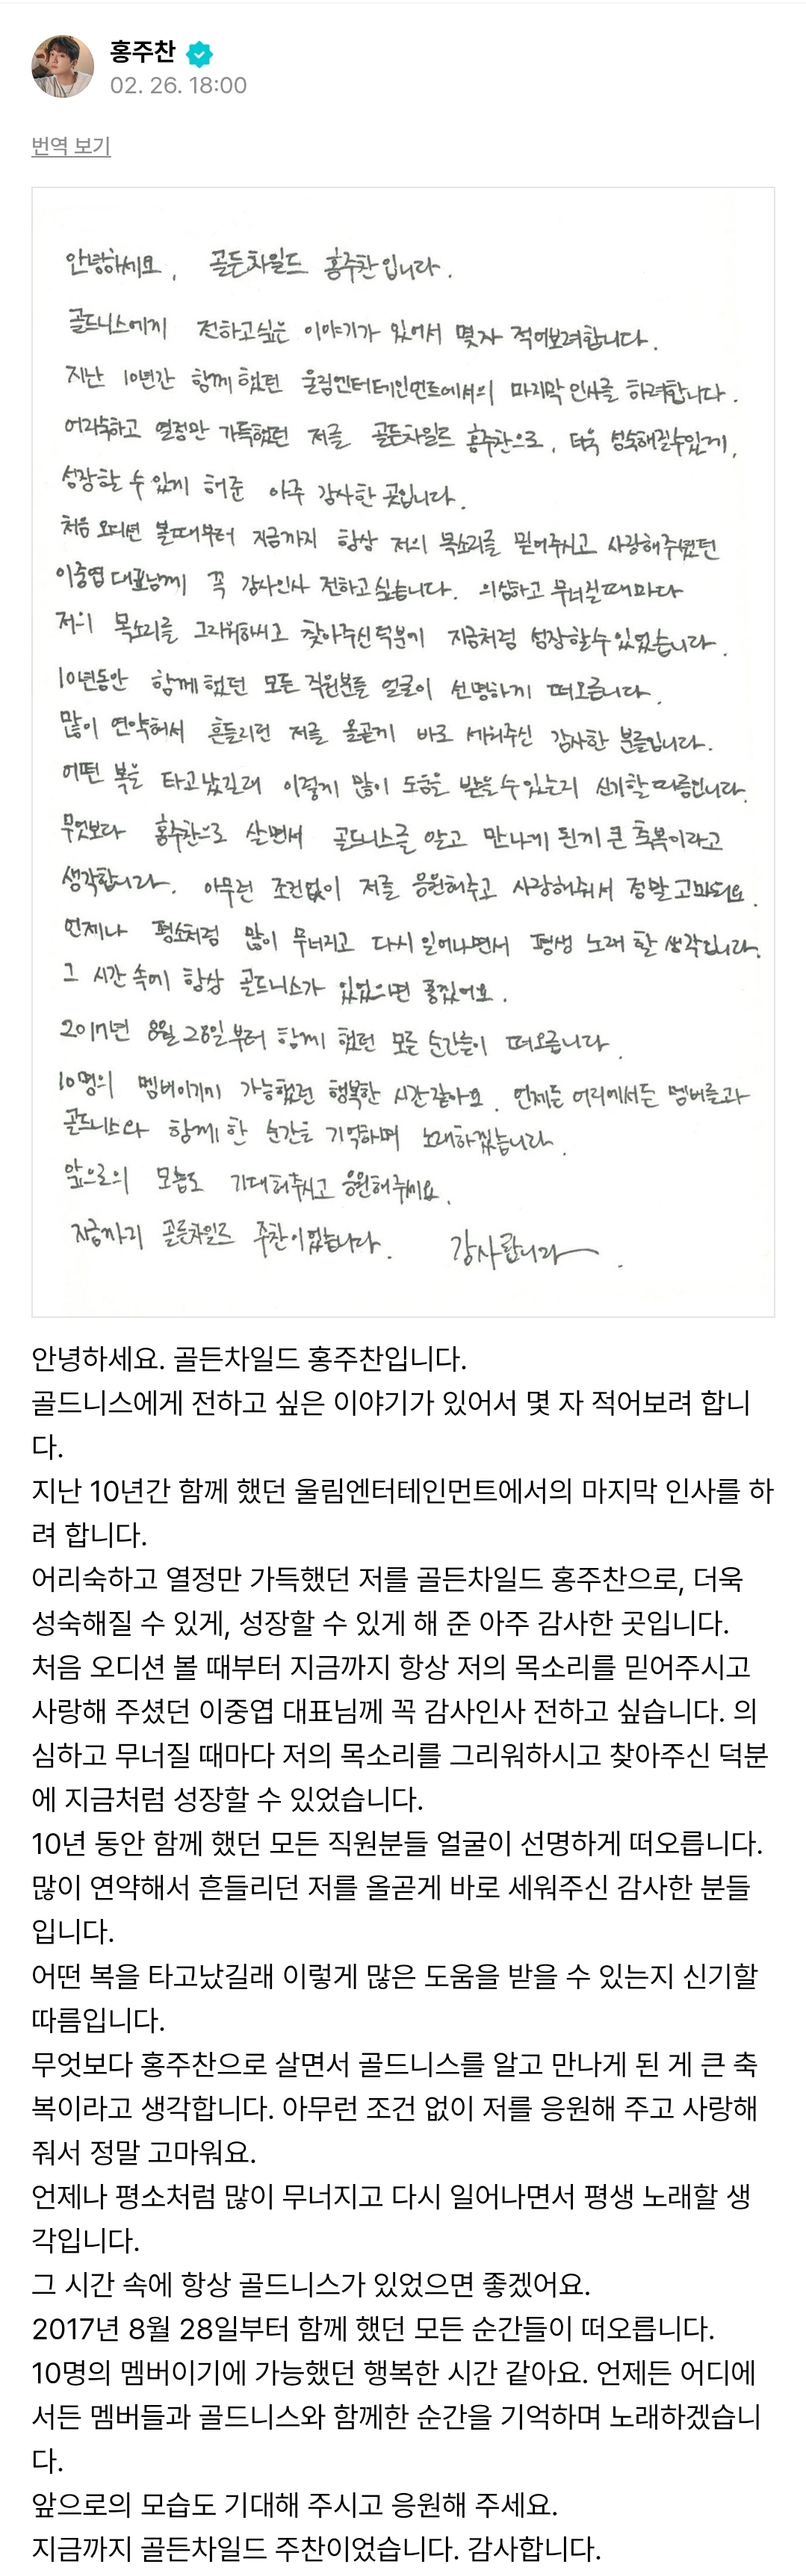 홍주찬
02. 26. 18:00
번역 보기
안녕하세요, 골든차일드 홍주찬입니다.
골드니스에게 전하고싶은 이야기가 있어서 몇자 적어보려합니다.
지난 10년간 함께 했던 울림엔터테인먼트에서의 마지막 인사를 하려합니다.
어리숙하고 열정만 가득했던 저를 골든차일드 홍주찬으로, 더욱 성숙해질수있게,
성장할 수 있게 해준 아주 감사한 곳입니다.
처음 오디션 볼때부터 지금까지 항상 저의 목소리를 믿어주시고 사랑해주셨던
이중엽 대표님께 꼭 감사인사 전하고싶습니다. 의심하고 무너질때마다
저의 목소리를 그리워하시고 찾아주신덕분에 지금처럼 성장할수있었습니다.
10년동안 함께 했던 모든 직원분들 얼굴이 선명하게 떠오릅니다.
많이 연약해서 흔들리던 저를 올곧게 바로 세워주신 감사한 분들입니다.
어떤 복을 타고났길래 이렇게 많이 도움을 받을수있는지 신기할따름입니다.
무엇보다 홍주찬으로 살면서 골드니스를 알고 만나게 된게 큰 축복이라고
생각합니다. 아무런 조건없이 저를 응원해주고 사랑해줘서 정말고마워요.
언제나 평소처럼 많이 무너지고 다시 일어나면서 평생 노래 할 생각입니다.
그 시간속에 항상 골드니스가 있었으면 좋겠어요.
2017년 8월 28일부터 함께 했던 모든 순간들이 떠오릅니다.
10명의 멤버이기에 가능했던 행복한 시간같아요. 언제든 어디에서든 멤버들과
골드니스와 함께 한 순간을 기억하며 노래하겠습니다.
앞으로의 모습도 기대해주시고 응원해주세요.
지금까지 골든차일드 주찬이었습니다. 감사합니다.
안녕하세요. 골든차일드 홍주찬입니다.
골드니스에게 전하고 싶은 이야기가 있어서 몇 자 적어보려 합니
다.
지난 10년간 함께 했던 울림엔터테인먼트에서의 마지막 인사를 하
려 합니다.
어리숙하고 열정만 가득했던 저를 골든차일드 홍주찬으로, 더욱
성숙해질 수 있게, 성장할 수 있게 해 준 아주 감사한 곳입니다.
처음 오디션 볼 때부터 지금까지 항상 저의 목소리를 믿어주시고
사랑해 주셨던 이중엽 대표님께 꼭 감사인사 전하고 싶습니다. 의
심하고 무너질 때마다 저의 목소리를 그리워하시고 찾아주신 덕분
에 지금처럼 성장할 수 있었습니다.
10년 동안 함께 했던 모든 직원분들 얼굴이 선명하게 떠오릅니다.
많이 연약해서 흔들리던 저를 올곧게 바로 세워주신 감사한 분들
입니다.
어떤 복을 타고났길래 이렇게 많은 도움을 받을 수 있는지 신기할
따름입니다.
무엇보다 홍주찬으로 살면서 골드니스를 알고 만나게 된 게 큰 축
복이라고 생각합니다. 아무런 조건 없이 저를 응원해 주고 사랑해
줘서 정말 고마워요.
언제나 평소처럼 많이 무너지고 다시 일어나면서 평생 노래할 생
각입니다.
그 시간 속에 항상 골드니스가 있었으면 좋겠어요.
2017년 8월 28일부터 함께 했던 모든 순간들이 떠오릅니다.
10명의 멤버이기에 가능했던 행복한 시간 같아요. 언제든 어디에
서든 멤버들과 골드니스와 함께한 순간을 기억하며 노래하겠습니
다.
앞으로의 모습도 기대해 주시고 응원해 주세요.
지금까지 골든차일드 주찬이었습니다. 감사합니다.